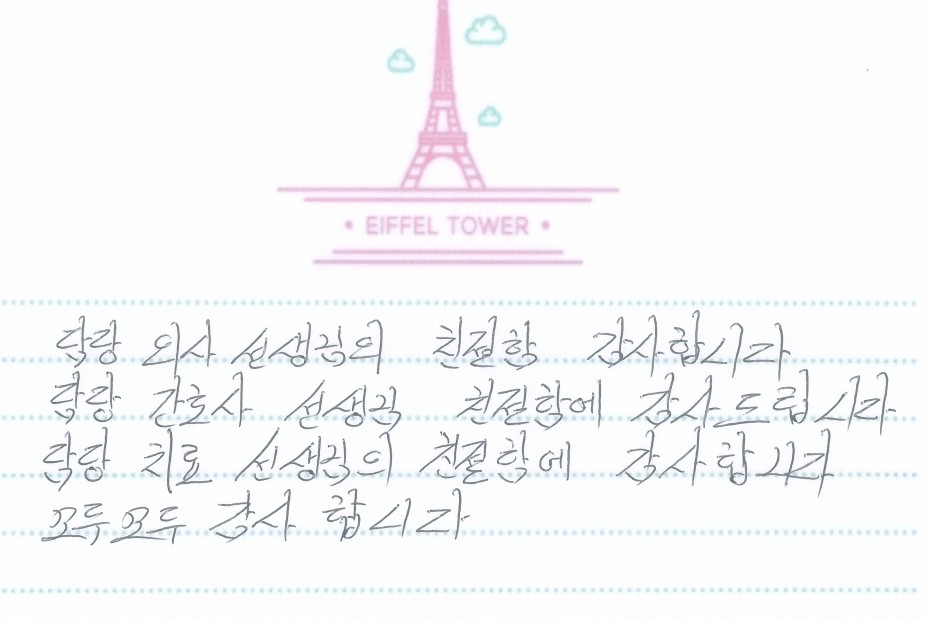 • EIFFEL TOWER •
담당 의사 선생님의 친절함 감사합니다
담당 간호사 선생님 친절함에 감사드립니다
담당 치료 선생님의 친절함에 감사합니다
모두모두 감사 합니다